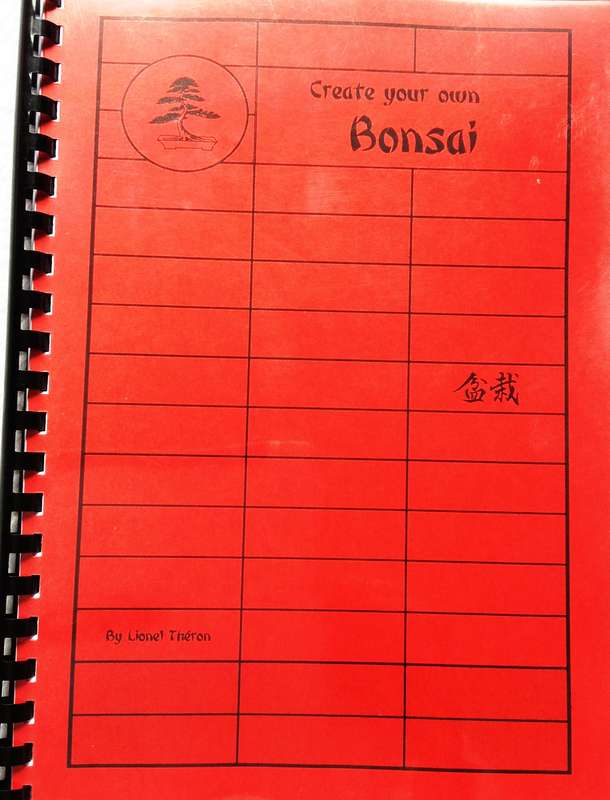 Create your own
Bonsai
盆栽
By Lionel Théron